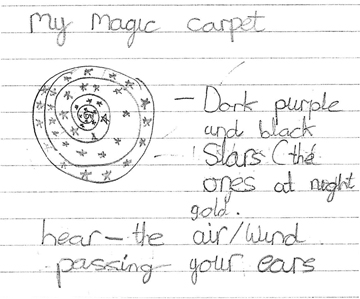 My Magic carpet
- Dark purple
and black
- Stars (the
ones at night
gold.
hear - the air/wind
passing your ears